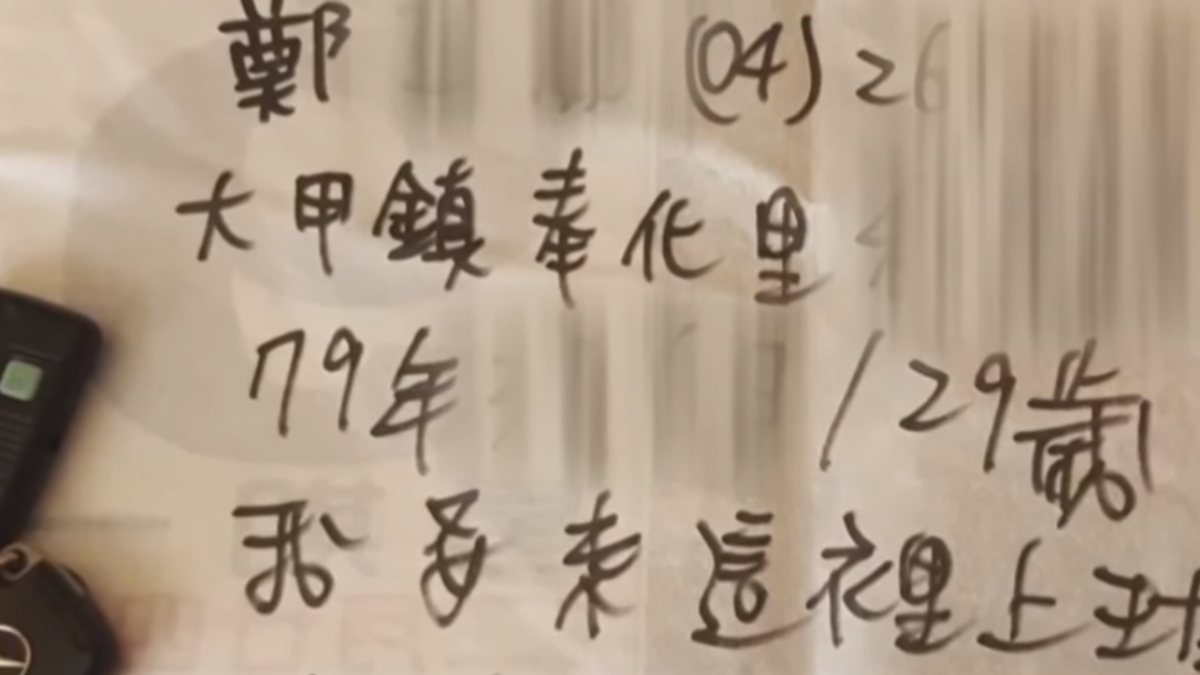 鄭 (04)26
大甲鎮奉化里
79年 /29歲
我要來這裡上班